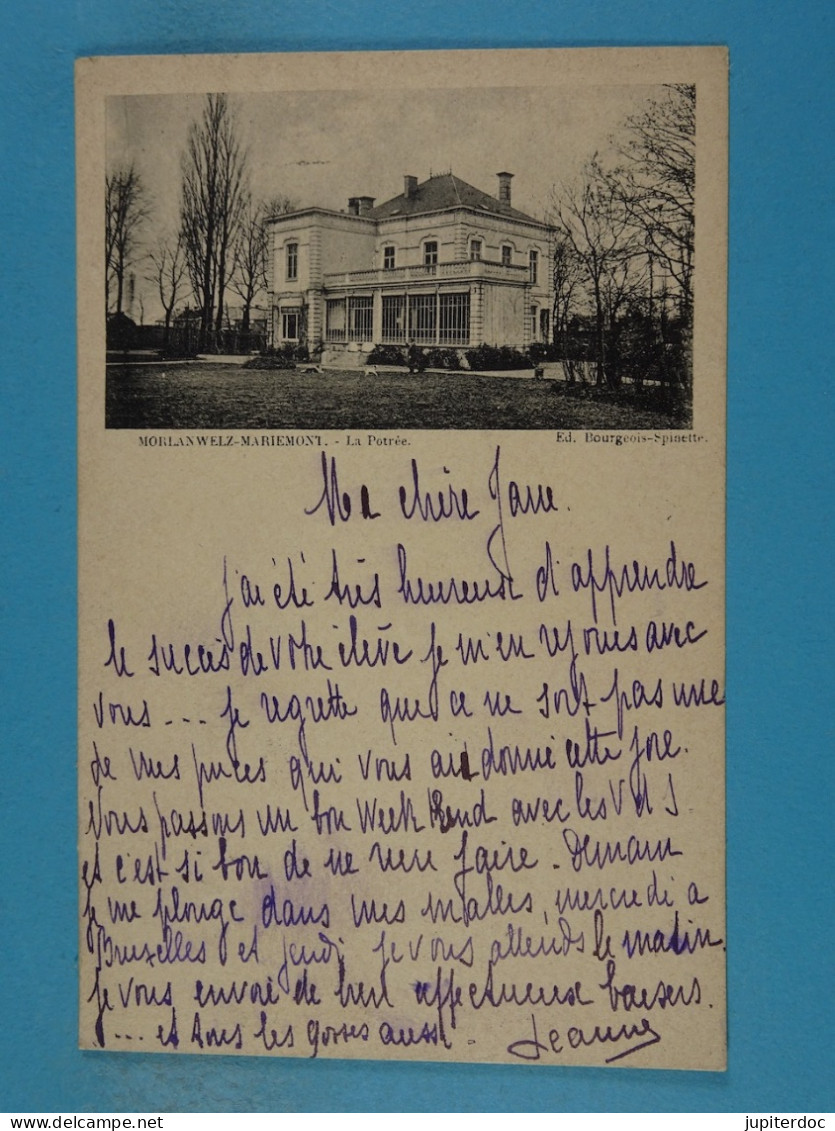 MORLANWELZ-MARIEMONT. - La Potrée.
Ed. Bourgeois-Spinette.
Ma chère Jane.
J'ai été très heureuse d'apprendre
le succès de votre élève je m'en rejouis avec
vous... je regrette que ce ne soit pas une
de mes puces qui vous ait donné cette joie.
Nous passons un bon Week End avec les V d S
et c'est si bon de ne rien faire. Demain
je me plonge dans mes malles, mercredi à
Bruxelles et jeudi je vous attends le matin.
je vous envoie de bien affectueux baisers.
... et tous les gosses aussi.
Jeanne
jupiterdoc
www.delcampe.net